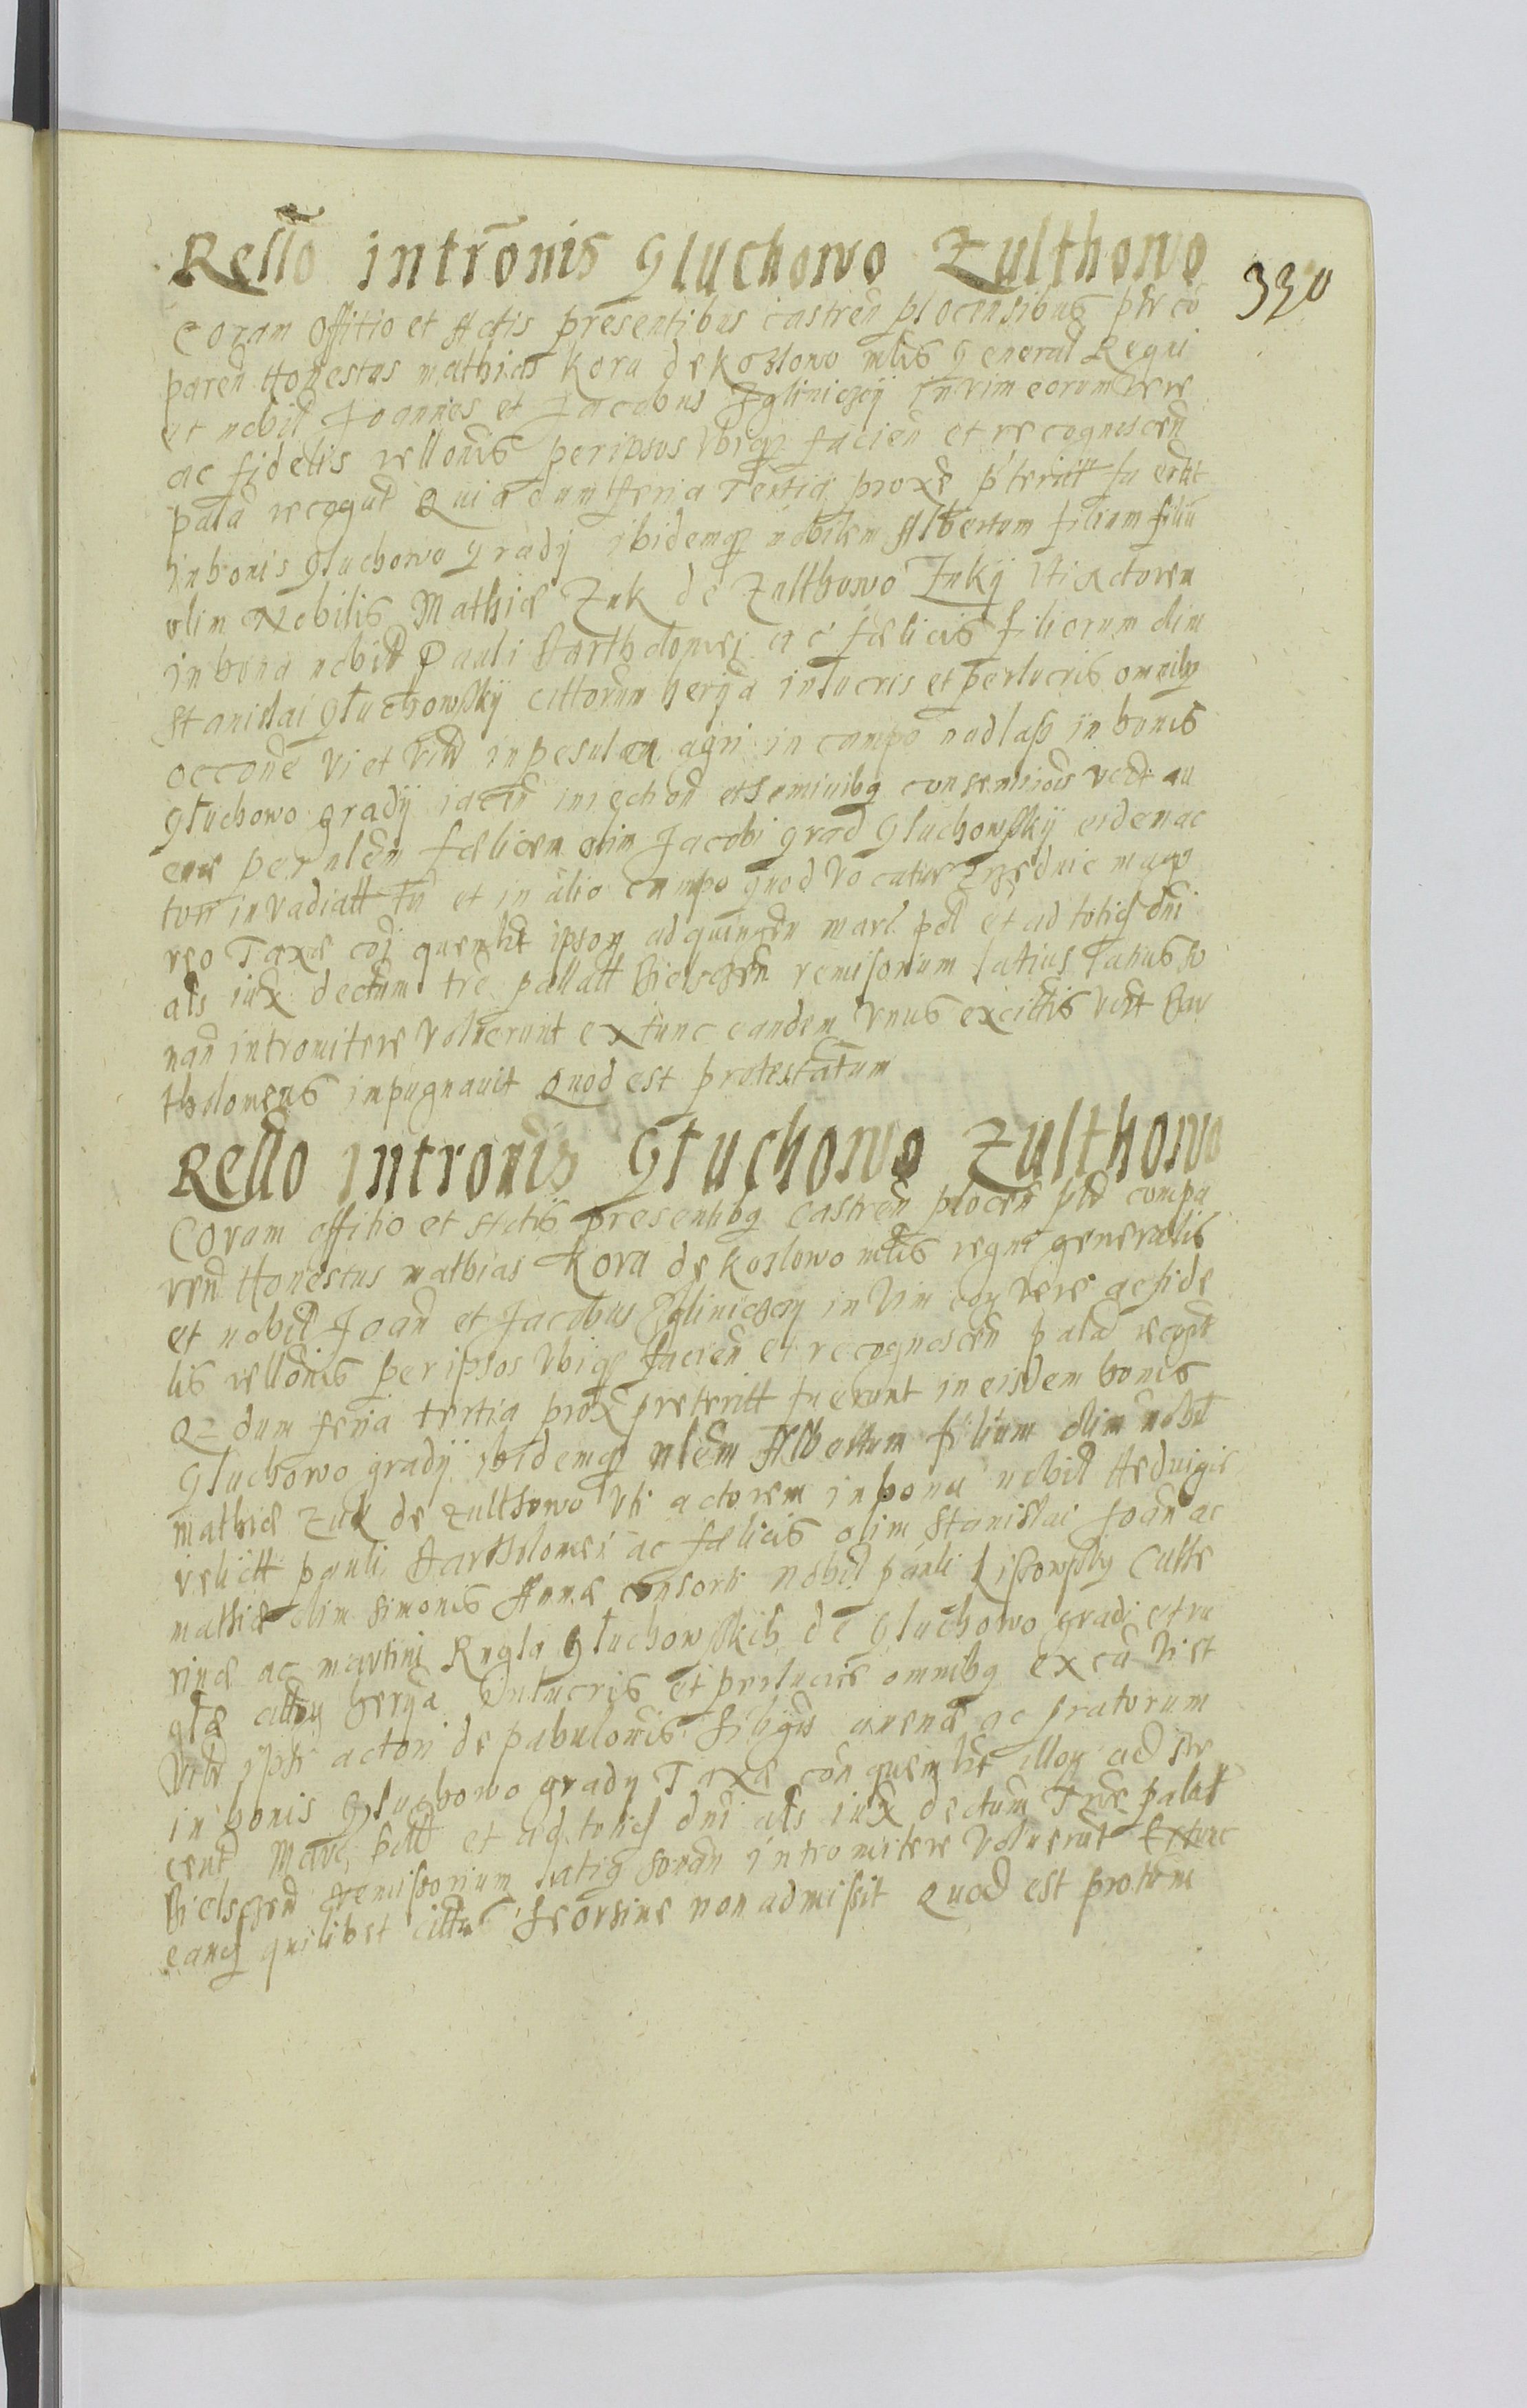 Rello intronis Gluchowo Zulthowo
330
Coram Offitio et Actis presentibus castren plocensibus pler co
paren Honestus mathias Kora de Kozlowo mlis General Regni
et nobil Joannes et Jacobus Zgliniczcij in vim eorum vere
ac fidelis rellonis per ipsos vbiq facien et recognoscen
pala recogut Quia dum feria tertia proxe pteritt fuerut
in bonis Gluchowo gradij ibidemq nobilem Albertum filium
olim Nobilis Mathiæ Zuk de Zulthowo Zukij vti Actorem
in bona nobil Pauli Bartholomei ac fælicis filiorum olim
Stanislai Głuchowskij cittorum herijd in lucris et perlucris omnibq
occone vi et in pesulam agri in campo nadlass in bonis
Głuchowo gradij iacen iniection et seminibq conseminois
per nlem fælicem olim Jacobi grad Głuchowskij eidem ac
tori invadiatt et in alio campo quod vocatur
reo Taxæ coi quemlit ipsorj ad quingen marc pol et ad totid dni
als iux dectum tre pallatt Bielscen remisorium latius
nan intromitere voluerunt ex tunc eandem vnus ex cittis Bar
tholomeus impugnauit Quod est protestatum
Rello intronis Głuchowo Zulthowo
Coram offitio et Actis presentibq castren plocen pld compa
ren Honestus mathias Kora de Kozlowo mlis regni generalis
et nobil Joan et Jacobus Zgliniczcij in vim eorj vere ac fide
lis rellonis per ipsos vbiq facien et recognoscen pala recogut
Q dum feria tertia prox preteritt fuerunt in eisdem bonis
Gluchowo gradij ibidemq nlem Albertum filium olim nobil
mathiæ Zuk de Zulthowo vti actorem in bona nobil Hedwigis
relictt pauli Bartholomei ac fælicis olim Stanislai Joan ac
mathiæ olim Simonis Annæ consortis nobil pauli Lissowskij Cathe
rinæ ac martini Rugla Głuchowskich de Gluchowo gradi et ru
glæ cittorj herijd in lucris et perlucris omnibq ex ca vi et
ipsi actori depabulonis siliginis auenæ ac pratorum
in bonis Głuchowo gradij Taxæ con quemlit illorj ad
cent Marc poll et ad totid dni als iux dectum Tre palat
Bielscen remissorium latiq sonan intromitere voluerut Extunc
eand quilibet cittus seorsiue non admissit Quod est protum